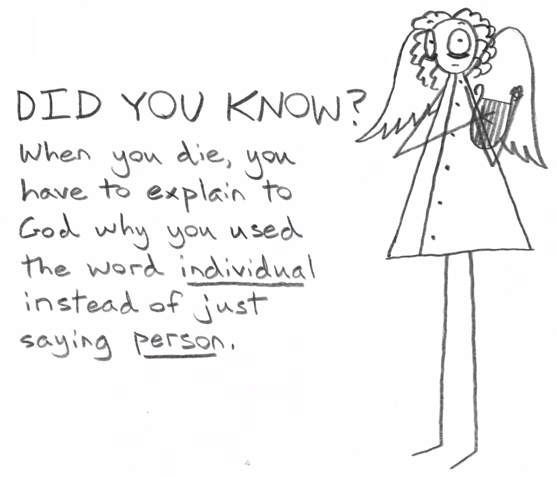 DID YOU KNOW?
When you die, you
have to explain to
God why you used
the word individual
instead of just
saying person.